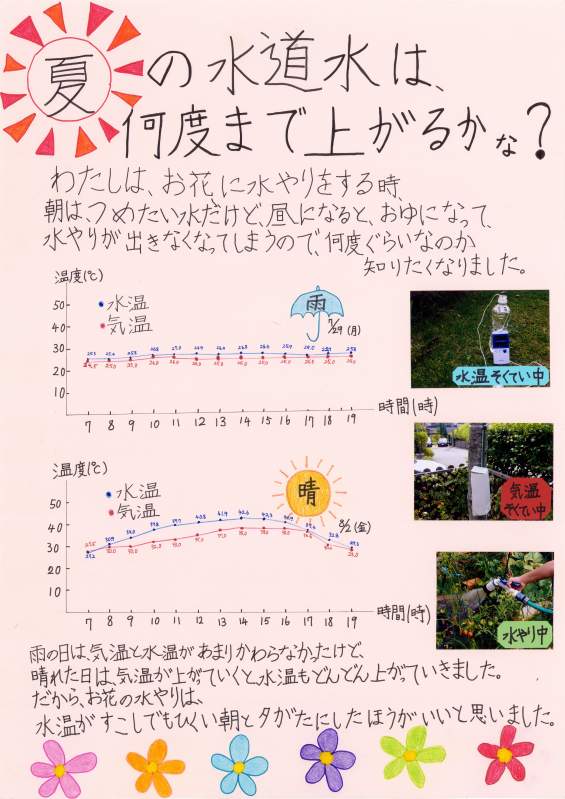 夏の水道水は、
何度まで上がるかな?
わたしは、お花に水やりをする時、
朝は、つめたい水だけど、昼になると、おゆになって、
水やりが出きなくなってしまうので、何度ぐらいなのか
知りたくなりました。
温度(℃)
水温
気温
雨
7/29(月)
50
40
30
20
10
7 8 9 10 11 12 13 14 15 16 17 18 19
時間(時)
水温そくてい中
温度(℃)
水温
気温
晴
8/2(金)
50
40
30
20
10
7 8 9 10 11 12 13 14 15 16 17 18 19
時間(時)
気温
そくてい中
水やり中
雨の日は、気温と水温があまりかわらなかったけど、
晴れた日は、気温が上がっていくと、水温もどんどん上がっていきました。
だから、お花の水やりは、
水温がすこしでもひくい朝と夕がたにしたほうがいいと思いました。